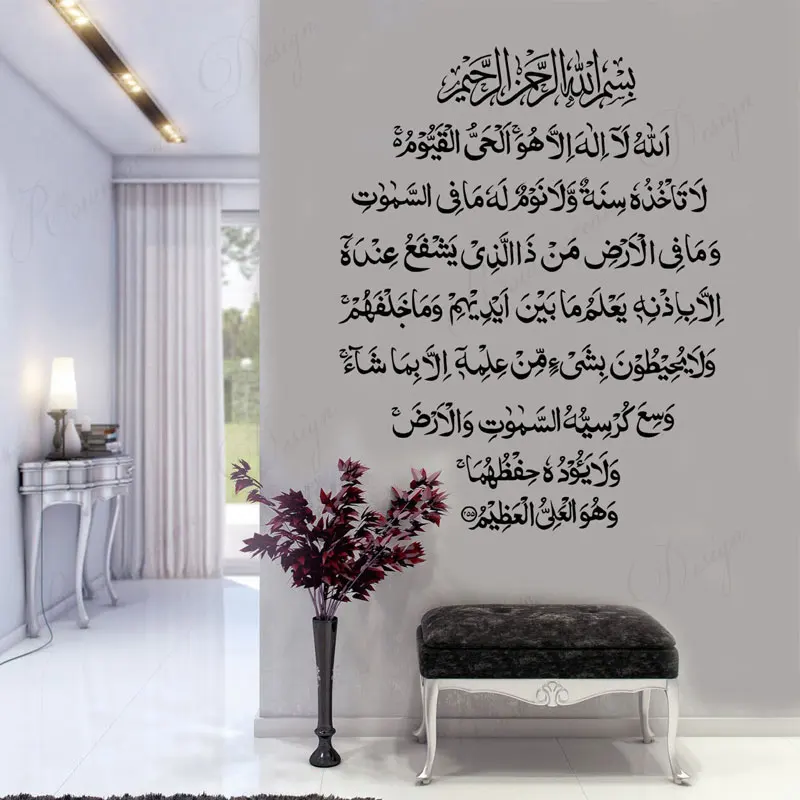 بِسْمِ اللهِ الرَّحْمٰنِ الرَّحِيْمِ
اَللهُ لَآ اِلٰهَ اِلَّا هُوَ ۚ اَلْحَیُّ الْقَيُّوْمُ ەۚ
لَا تَاْخُذُهٗ سِنَةٌ وَّلَا نَوْمٌ لَهٗ مَا فِی السَّمٰوٰتِ
وَمَا فِی الْاَرْضِ مَنْ ذَا الَّذِیْ يَشْفَعُ عِنْدَهٗٓ
اِلَّا بِاِذْنِهٖ يَعْلَمُ مَا بَيْنَ اَيْدِيْهِمْ وَمَا خَلْفَهُمْ ۚ
وَلَا يُحِيْطُوْنَ بِشَیْءٍ مِّنْ عِلْمِهٖٓ اِلَّا بِمَا شَآءَ ۚ
وَسِعَ كُرْسِيُّهُ السَّمٰوٰتِ وَالْاَرْضَ ۚ
وَلَا يَـُٔوْدُهٗ حِفْظُهُمَا ۚ
وَهُوَ الْعَلِیُّ الْعَظِيْمُ ۝٢٥٥
Design